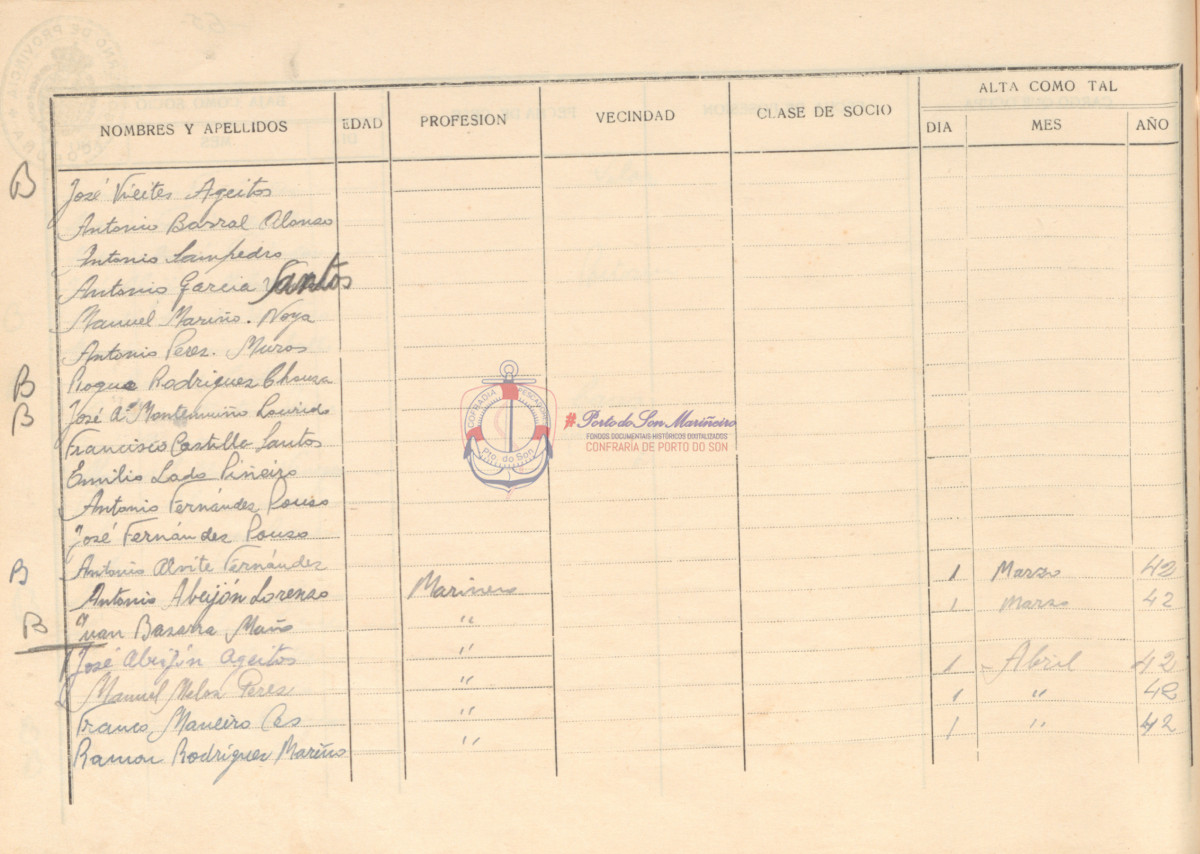 ALTA COMO TAL
NOMBRES Y APELLIDOS EDAD PROFESION VECINDAD CLASE DE SOCIO DIA MES AÑO
B José Vieites Ageitos
Antonio Barral Alonso
Antonio Sampedro
Antonio Garcia Santos
Manuel Mariño. Noya
Antonio Perez. Muros
B Roque Rodriguez Chouza
B José Aº Montemuiño Lourido
Francisco Castillo Santos
Emilio Lado Piñeiro
Antonio Fernández Pouso
José Fernández Pouso
B Antonio Alvite Fernández 1 Marzo 42
Antonio Abeijón Lorenzo Marinero 1 Marzo 42
B Juan Bazarra Maño "
José Abeijón Ageitos " 1 Abril 42
Manuel Melon Perez " 1 " 42
Franco Maneiro Ces " 1 " 42
Ramon Rodríguez Mariño "
COFRADIA PESCADORES
Pto. do Son
#Porto do Son Mariñeiro
FONDOS DOCUMENTAIS HISTÓRICOS DIXITALIZADOS
CONFRARÍA DE PORTO DO SON